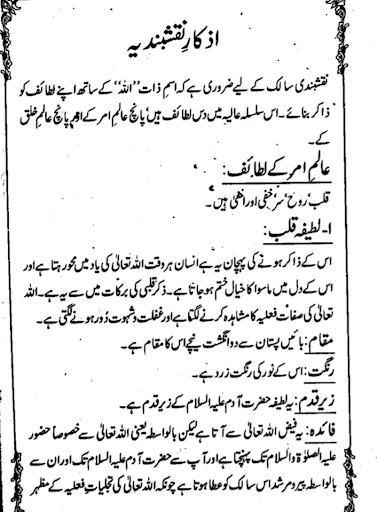 اذکارِ نقشبندیہ
نقشبندی سالک کے لیے ضروری ہے کہ اسم ذات ”اللہ“ کے ساتھ اپنے لطائف کو
ذاکر بنائے۔ اس سلسلہ عالیہ میں دس لطائف ہیں پانچ عالمِ امر کے اور پانچ عالمِ خلق
کے۔
عالمِ امر کے لطائف:
قلب، روح، سر، خفی اور اخفیٰ ہیں۔
۱- لطیفہ قلب:
اس کے ذاکر ہونے کی پہچان یہ ہے انسان ہر وقت اللہ تعالیٰ کی یاد میں محو رہتا ہے اور
اس کے دل میں ماسوا کا خیال ختم ہو جاتا ہے۔ ذکر قلبی کی برکات میں سے یہ ہے۔ اللہ
تعالیٰ کی صفات فعلیہ کا مشاہدہ کرنے لگتا ہے اور غفلت و شہوت دُور ہونے لگتی ہے۔
مقام: بائیں پستان سے دو انگشت نیچے اس کا مقام ہے۔
رنگت: اس کے نور کی رنگت زرد ہے۔
زیرِ قدم: یہ لطیفہ حضرت آدم علیہ السلام کے زیر قدم ہے۔
فائدہ: یہ فیض اللہ تعالیٰ سے آتا ہے لیکن بالواسطہ یعنی اللہ تعالیٰ سے خصوصاً حضور
علیہ الصلوٰۃ والسلام تک پہنچتا ہے اور آپ سے حضرت آدم علیہ السلام تک اور ان سے
بالواسطہ پیر و مرشد اس سالک کو عطا ہوتا ہے چونکہ اللہ تعالیٰ کی تجلیات فعلیہ کے مظہر